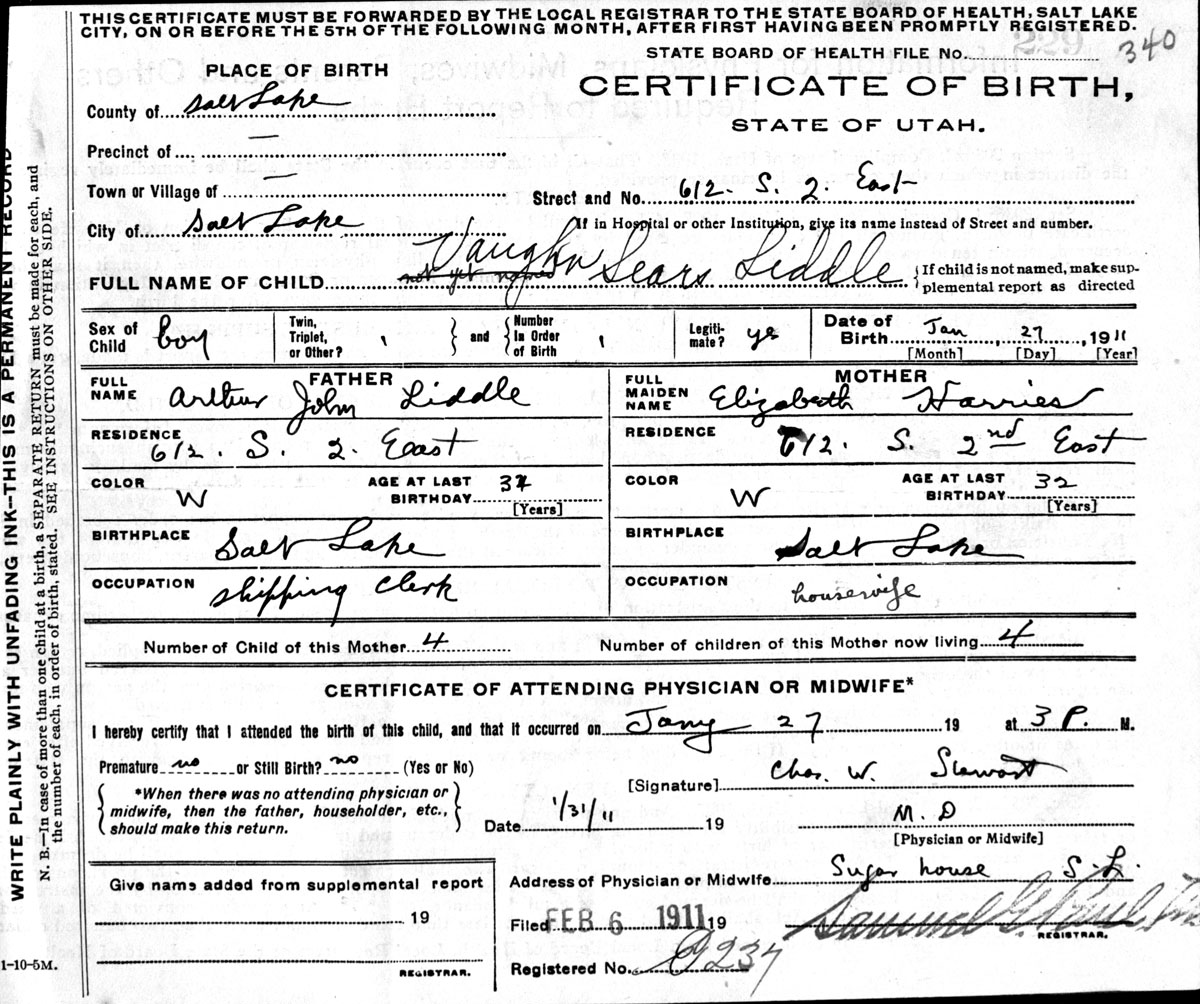 THIS CERTIFICATE MUST BE FORWARDED BY THE LOCAL REGISTRAR TO THE STATE BOARD OF HEALTH, SALT LAKE
CITY, ON OR BEFORE THE 5TH OF THE FOLLOWING MONTH, AFTER FIRST HAVING BEEN PROMPTLY REGISTERED.
STATE BOARD OF HEALTH FILE No. 340
PLACE OF BIRTH
CERTIFICATE OF BIRTH,
STATE OF UTAH.
County of Salt Lake
Precinct of —
Town or Village of —
Street and No. 612. S. 2. East
City of Salt Lake
If in Hospital or other Institution, give its name Instead of Street and number.
FULL NAME OF CHILD not yet named Vaughn Sears Liddle
{If child is not named, make sup-
plemental report as directed
Sex of Child boy
Twin, Triplet, or Other? } and { Number In Order of Birth
Legiti-mate? yes
Date of Birth Jan, 27, 1911
[Month] [Day] [Year]
FATHER
FULL NAME Arthur John Liddle
RESIDENCE 612. S. 2. East
COLOR W AGE AT LAST BIRTHDAY 37
[Years]
BIRTHPLACE Salt Lake
OCCUPATION shipping Clerk
MOTHER
FULL MAIDEN NAME Elizabeth Harries
RESIDENCE 612. S. 2nd East
COLOR W AGE AT LAST BIRTHDAY 32
[Years]
BIRTHPLACE Salt Lake
OCCUPATION housewife
Number of Child of this Mother 4 Number of children of this Mother now living 4
CERTIFICATE OF ATTENDING PHYSICIAN OR MIDWIFE*
I hereby certify that I attended the birth of this child, and that it occurred on Jany 27 19 at 3 P. M.
Premature no or Still Birth? no (Yes or No)
*When there was no attending physician or
midwife, then the father, householder, etc.,
should make this return.
[Signature] Chas. W. Stewart
Date 1/31/11 19
M. D
[Physician or Midwife]
Give name added from supplemental report
19
REGISTRAR.
Address of Physician or Midwife Sugar house S. L.
Filed FEB 6 1911 19
Samuel G. Paul
REGISTRAR.
Registered No. 9237
1-10-5M.
WRITE PLAINLY WITH UNFADING INK--THIS IS A PERMANENT RECORD
N. B.—In case of more than one child at a birth, a SEPARATE RETURN must be made for each, and
the number of each, in order of birth, stated. SEE INSTRUCTIONS ON OTHER SIDE.